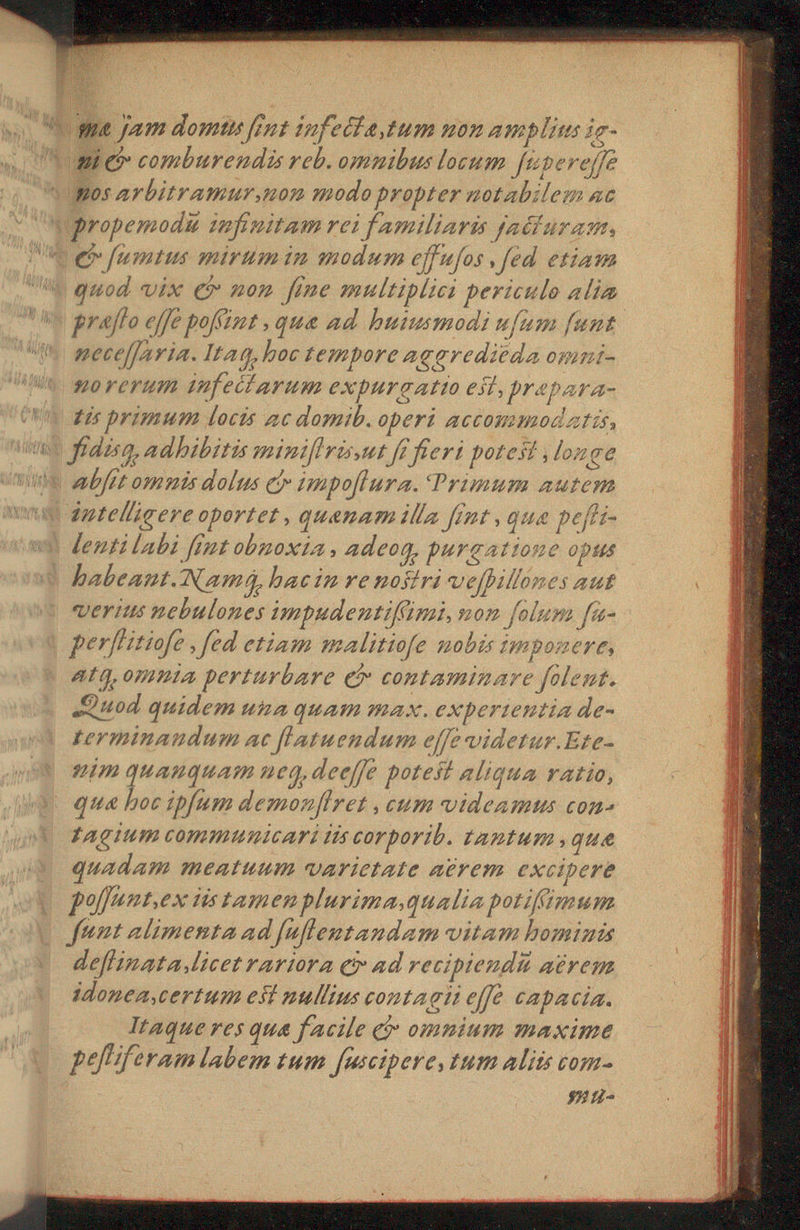 ma jam domus ſint infecta, tum non amplius ig-
ni & comburendis reb. omnibus locum ſupereſſe
nos arbitramur, non modo propter notabilem ac
propemodū infinitam rei familiaris jacturam,
& ſumtus mirum in modum effuſos, ſed etiam
quod vix & non ſine multiplici periculo alia
præſto eſſe poſsint, quæ ad huiusmodi uſum ſunt
neceſſaria. Itaq, hoc tempore aggrediēda omni-
no rerum infectarum expurgatio est, præpara-
tis primum locis ac domib. operi accommodatis,
fidisq, adhibitis miniſtris, ut ſi fieri potest, longe
abſit omnis dolus & impoſtura. Primum autem
intelligere oportet, quænam illa ſint, quæ peſti-
lenti labi ſint obnoxia, adeoq, purgatione opus
habeant. Namq, hac in re nostri veſpillones aut
verius nebulones impudentiſsimi, non ſolum ſu-
perſtitioſe, ſed etiam malitioſe nobis imponere,
atq, omnia perturbare & contaminare ſolent.
Quod quidem una quam max. experientia de-
terminandum ac ſtatuendum eſſe videtur. Ete-
nim quanquam neq, deeſſe potest aliqua ratio,
quæ hoc ipſum demonſtret, cum videamus con-
tagium communicari iis corporib. tantum, quæ
quadam meatuum varietate aërem excipere
poſſunt, ex iis tamen plurima, qualia potiſsimum
ſunt alimenta ad ſuſtentandam vitam hominis
deſtinata, licet rariora & ad recipiendū aërem
idonea, certum est nullius contagii eſſe capacia.
Itaque res quæ facile & omnium maxime
peſtiferam labem tum ſuscipere, tum aliis com-
mu-